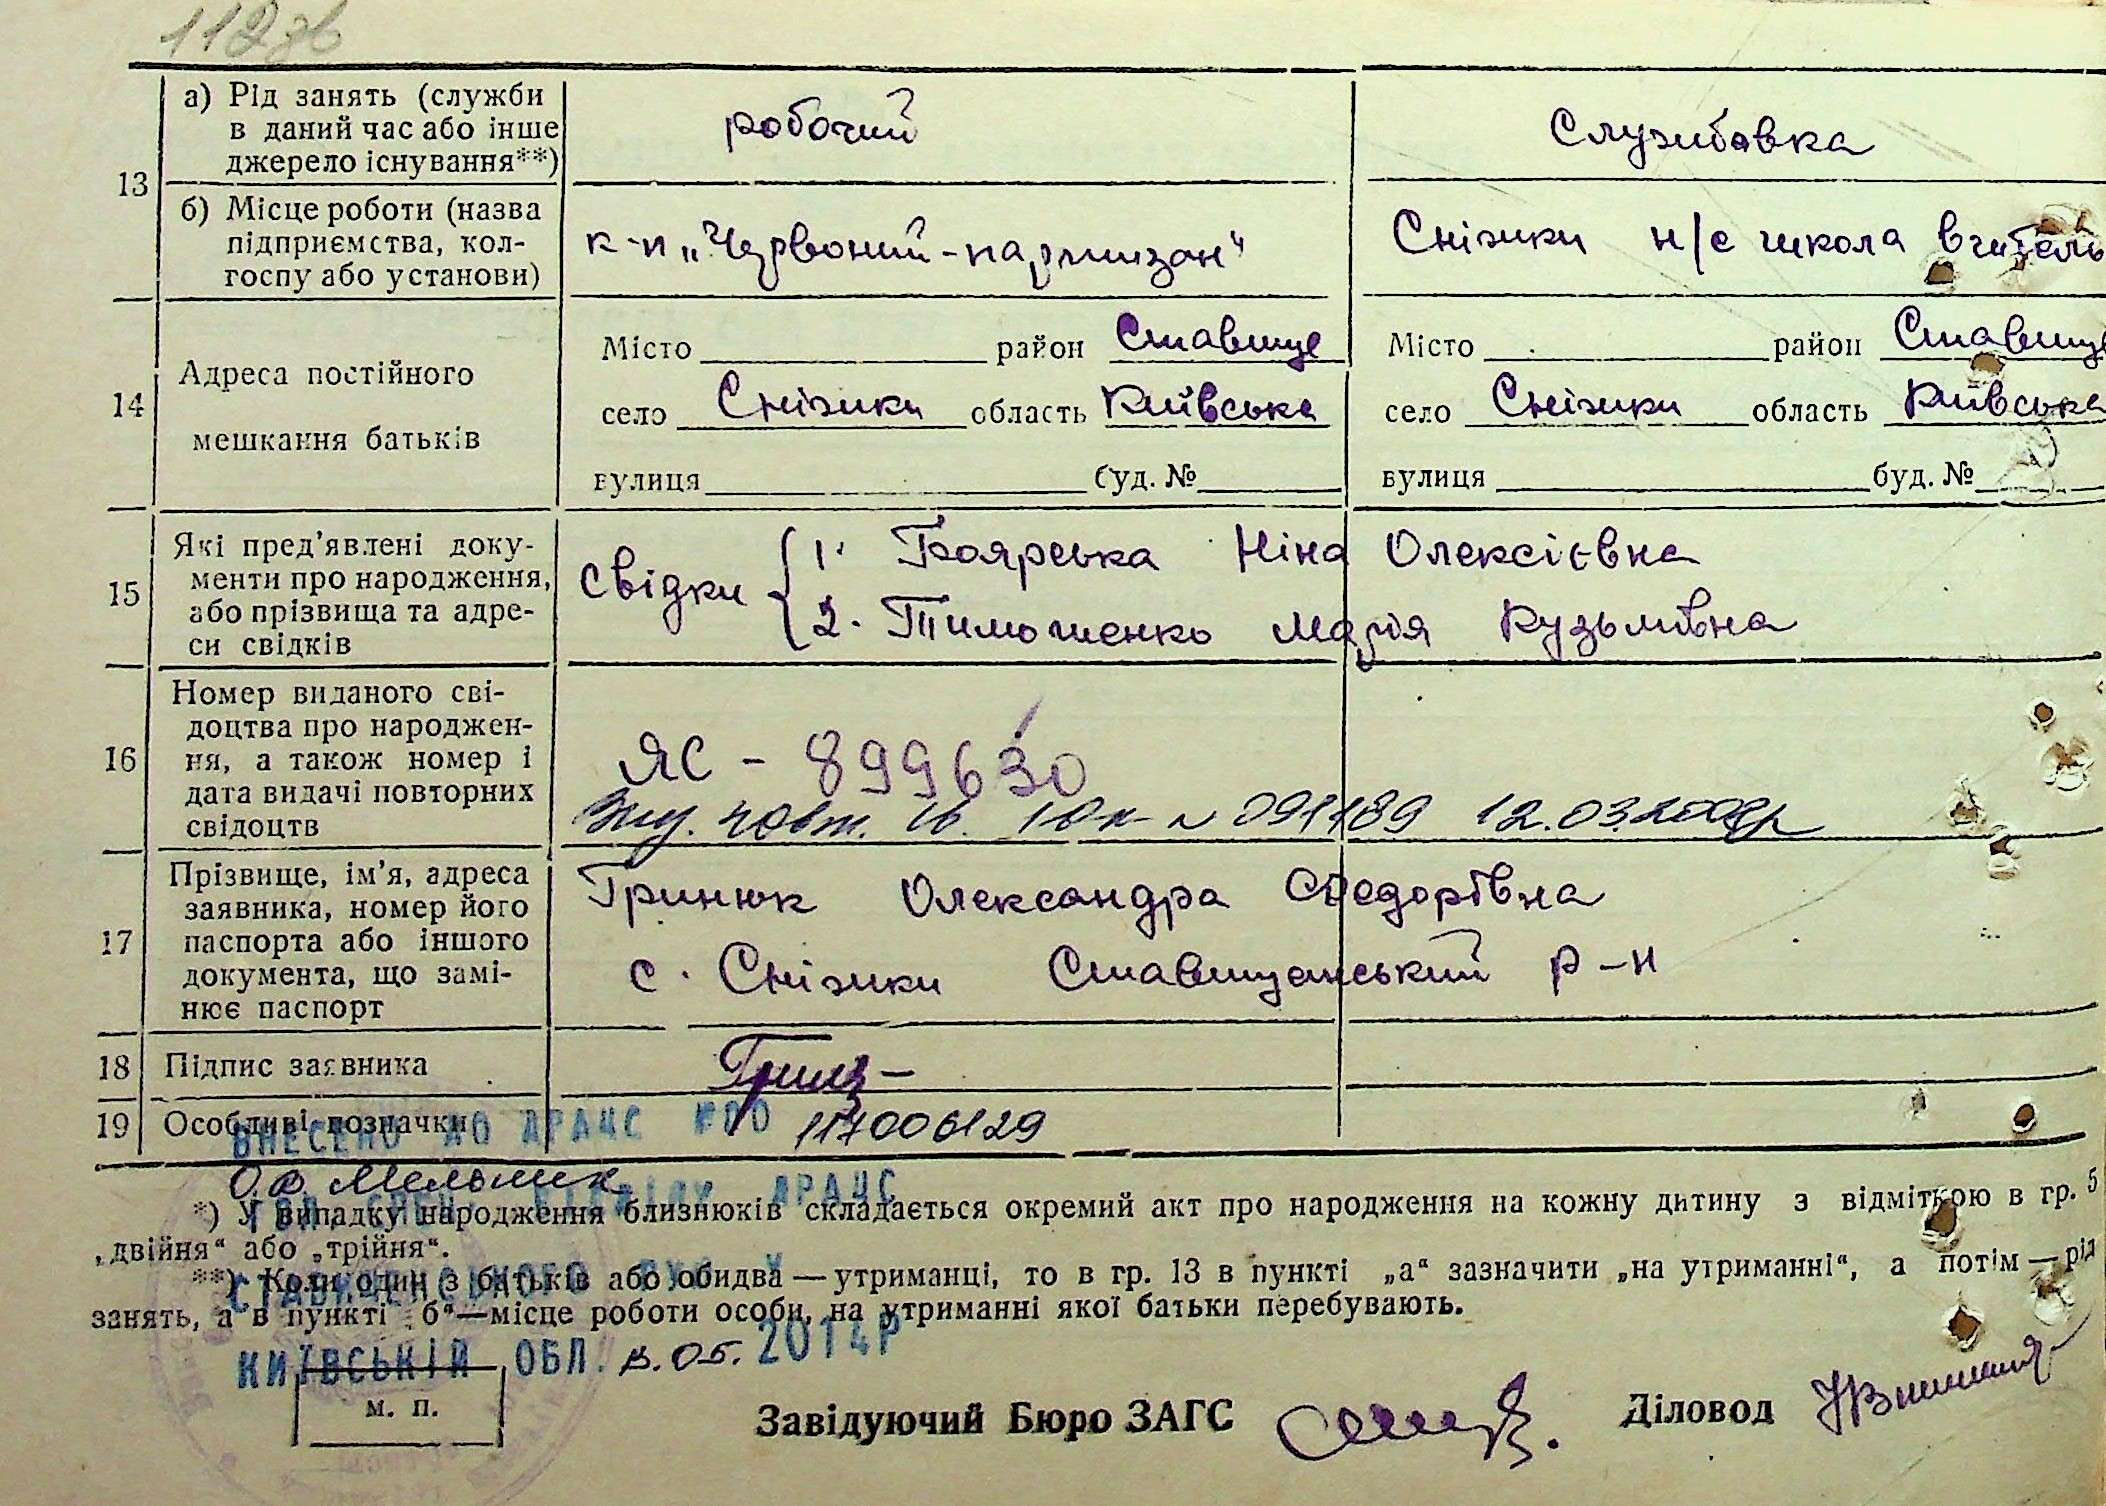 112зв
13
а) Рід занять (служби
в даний час або інше
джерело існування**)
робочий
Службовка
б) Місце роботи (назва
підприємства, кол-
госпу або установи)
к-п „Червоний-партизан"
Сніжки н/с школа вчитель
14
Адреса постійного
мешкання батьків
Місто район Ставище
село Сніжки область Київська
вулиця буд. №
Місто район Ставище
село Сніжки область Київська
вулиця буд. №
15
Які пред'явлені доку-
менти про народження,
або прізвища та адре-
си свідків
Свідки
1. Боярська Ніна Олексієвна
2. Тимошенко Марія Кузьмівна
16
Номер виданого сві-
доцтва про народжен-
ня, а також номер і
дата видачі повторних
свідоцтв
ЯС - 899630
повт. св. N 091189 12.03.
17
Прізвище, ім'я, адреса
заявника, номер його
паспорта або іншого
документа, що замі-
нює паспорт
Гринюк Олександра Федорівна
с. Сніжки Ставищанський р-н
18
Підпис заявника
19
Особливі позначки
ВНЕСЕНО ДО ДРАЦС
117006129
О.В. Мельник
ВІДДІЛУ ДРАЦС
*) У випадку народження близнюків складається окремий акт про народження на кожну дитину з відміткою в гр. 5
„двійня“ або „трійня“.
**) Коли один з батьків або обидва — утриманці, то в гр. 13 в пункті „а“ зазначити „на утриманні“, а потім — рід
занять, а в пункті „б“—місце роботи особи, на утриманні якої батьки перебувають.
СТАВИЩЕНСЬКОГО
КИЇВСЬКІЙ ОБЛ. 05. 2014Р
м. п.
Завідуючий Бюро ЗАГС
Діловод